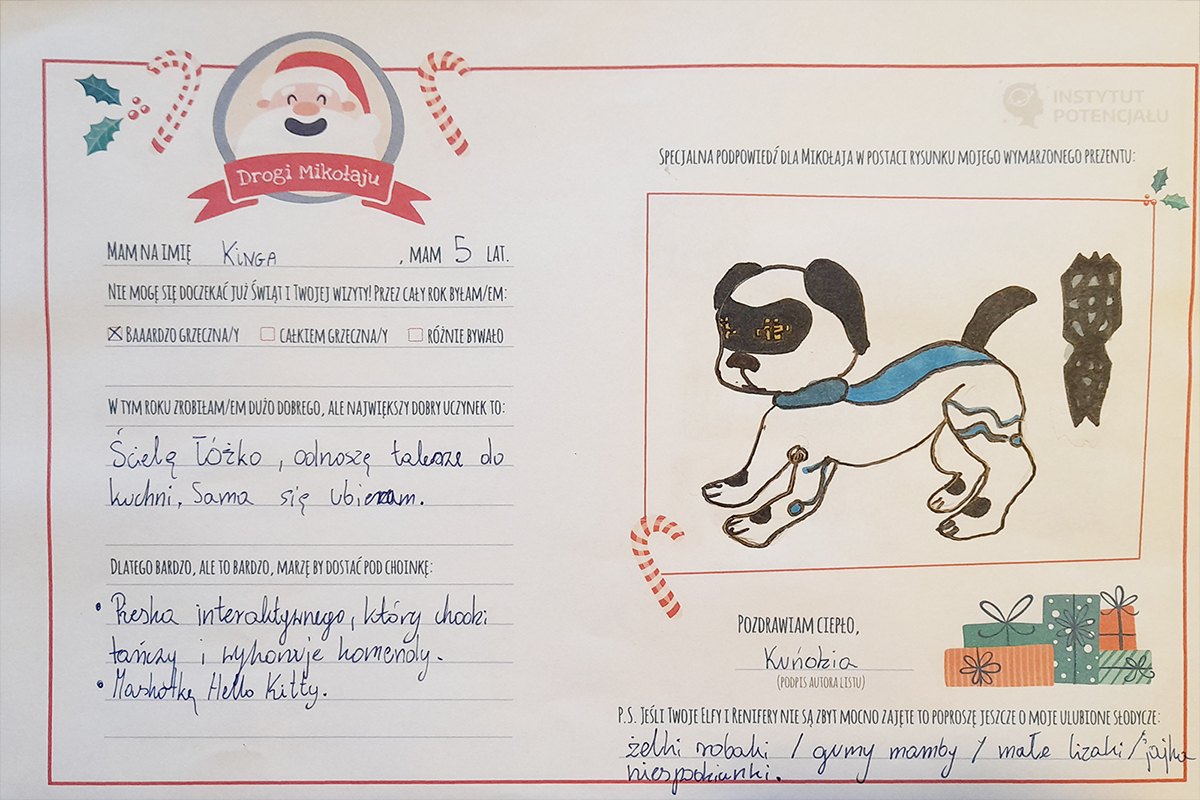 Drogi Mikołaju
Mam na imię Kinga , mam 5 lat.
Nie mogę się doczekać już Świąt i Twojej wizyty! Przez cały rok byłam/em:
☒ Baaardzo grzeczna/y ☐ całkiem grzeczna/y ☐ różnie bywało
W tym roku zrobiłam/em dużo dobrego, ale największy dobry uczynek to:
Ścielę łóżko, odnoszę talerze do
kuchni, Sama się ubieram.
Dlatego bardzo, ale to bardzo, marzę by dostać pod choinkę:
• Pieska interaktywnego, który chodzi
tańczy i wykonuje komendy.
• Maskotkę Hello Kitty.
INSTYTUT
POTENCJAŁU
Specjalna podpowiedź dla Mikołaja w postaci rysunku mojego wymarzonego prezentu:
Pozdrawiam ciepło,
Kuńdzia
(podpis autora listu)
P.S. Jeśli Twoje Elfy i Renifery nie są zbyt mocno zajęte to poproszę jeszcze o moje ulubione słodycze:
żelki robaki / gumy mamby / małe lizaki / jajka
niespodzianki.